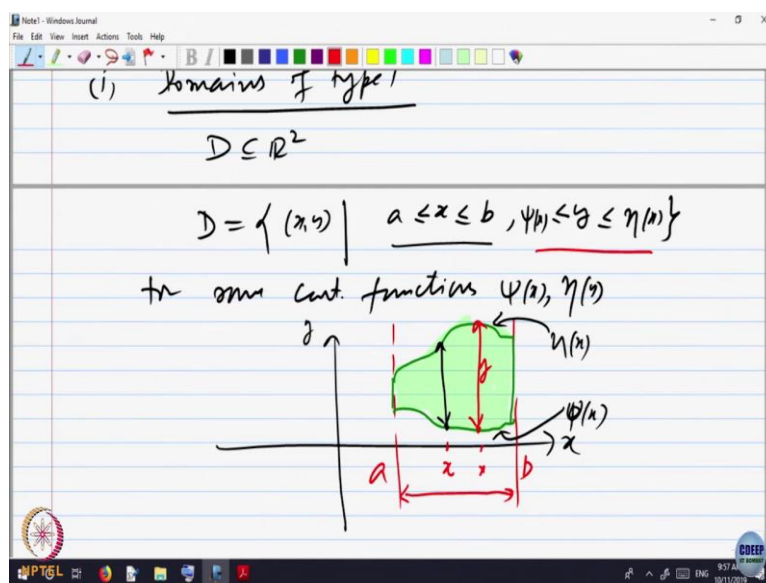 Note1 - Windows Journal
File Edit View Insert Actions Tools Help
(i) Domains of type 1
D ⊆ ℝ²
D = { (x,y) | a ≤ x ≤ b, ψ(x) ≤ y ≤ η(x)}
for some cont. functions ψ(x), η(y)
y
η(x)
y
ψ(x)
x
a x x b
NPTEL
CDEEP
IIT BOMBAY
ENG
9:57 A
10/11/2019